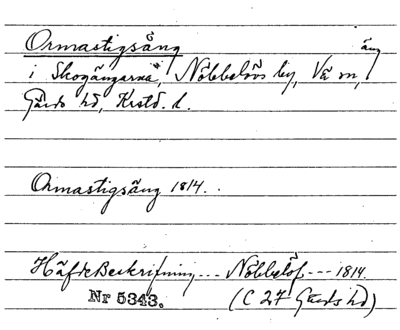 Ormastigsäng äng
i Skogängarna, Nöbbelövs by, Vä sn,
Gärds hd, Krstd. l.
Ormastigsäng 1814.
HäfdeBeskrifning --- Nöbbelöf --- 1814.
Nr 5343. (C 27 Gärds hd)